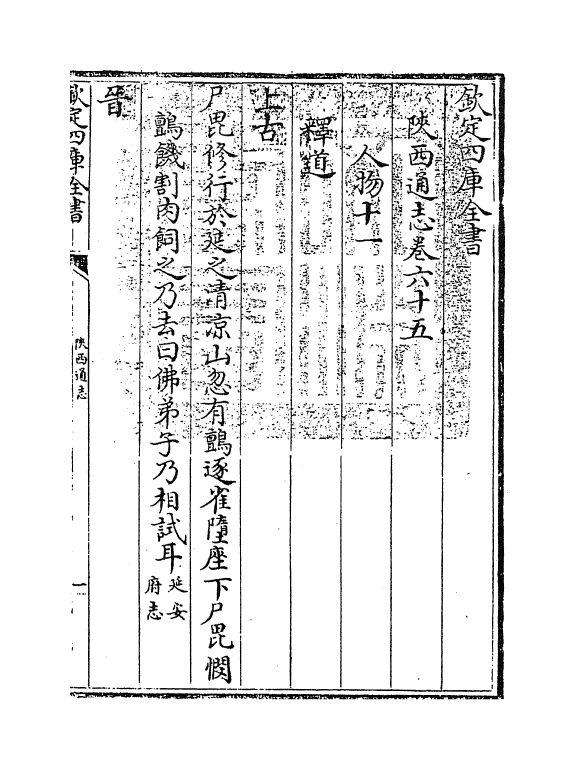 欽定四庫全書
陜西通志卷六十五
人物十一
釋道
上古
尸毘修行於延之清凉山忽有鸇逐雀墮座下尸毘憫
鸇饑割肉飼之乃去曰佛弟子乃相試耳延安府志
晉
欽定四庫全書
陜西通志
一